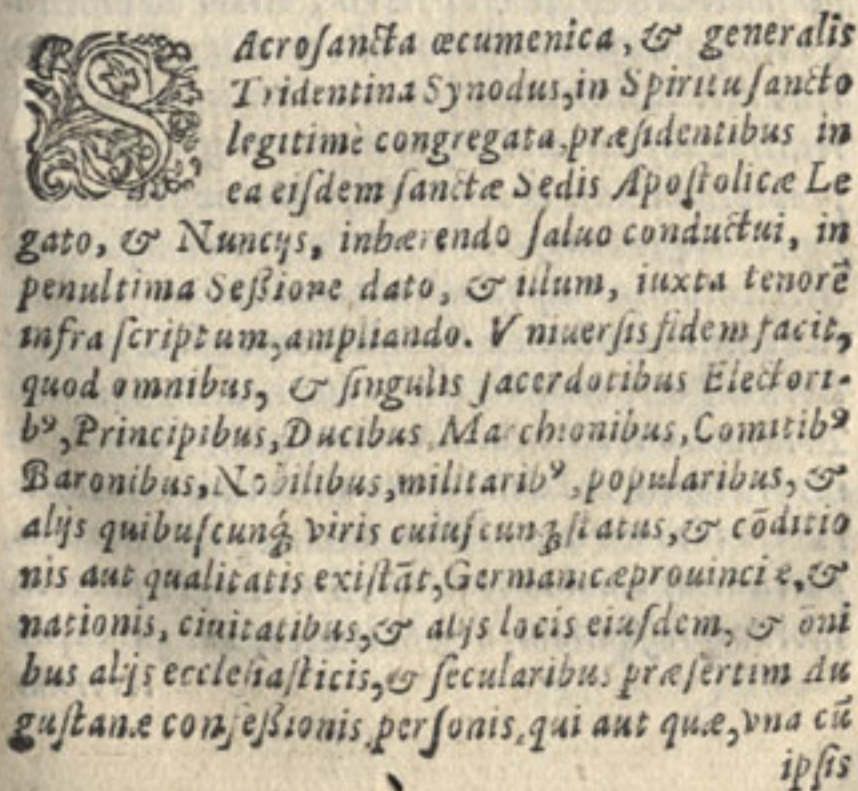 SAcroſancta œcumenica, & generalis
Tridentina Synodus, in Spiritu ſancto
legitimè congregata, præſidentibus in
ea eiſdem ſanctæ Sedis Apoſtolicæ Le
gato, & Nuncijs, inhærendo ſaluo conductui, in
penultima Seßione dato, & illum, iuxta tenorē
infra ſcriptum, ampliando. Vniuerſis fidem facit,
quod omnibus, & ſingulis ſacerdotibus Electori-
bꝰ, Principibus, Ducibus, Marchionibus, Comitibꝰ
Baronibus, Nobilibus, militaribꝰ, popularibus, &
alijs quibuſcunqꝫ viris cuiuſcunqꝫ ſtatus, & cōditio
nis aut qualitatis exiſtāt, Germanicæ prouinciæ, &
nationis, ciuitatibus, & alijs locis eiuſdem, & ōni
bus alijs eccleſiaſticis, & ſecularibus præſertim Au
guſtanæ confeßionis perſonis, qui aut quæ, vna cū
ipſis